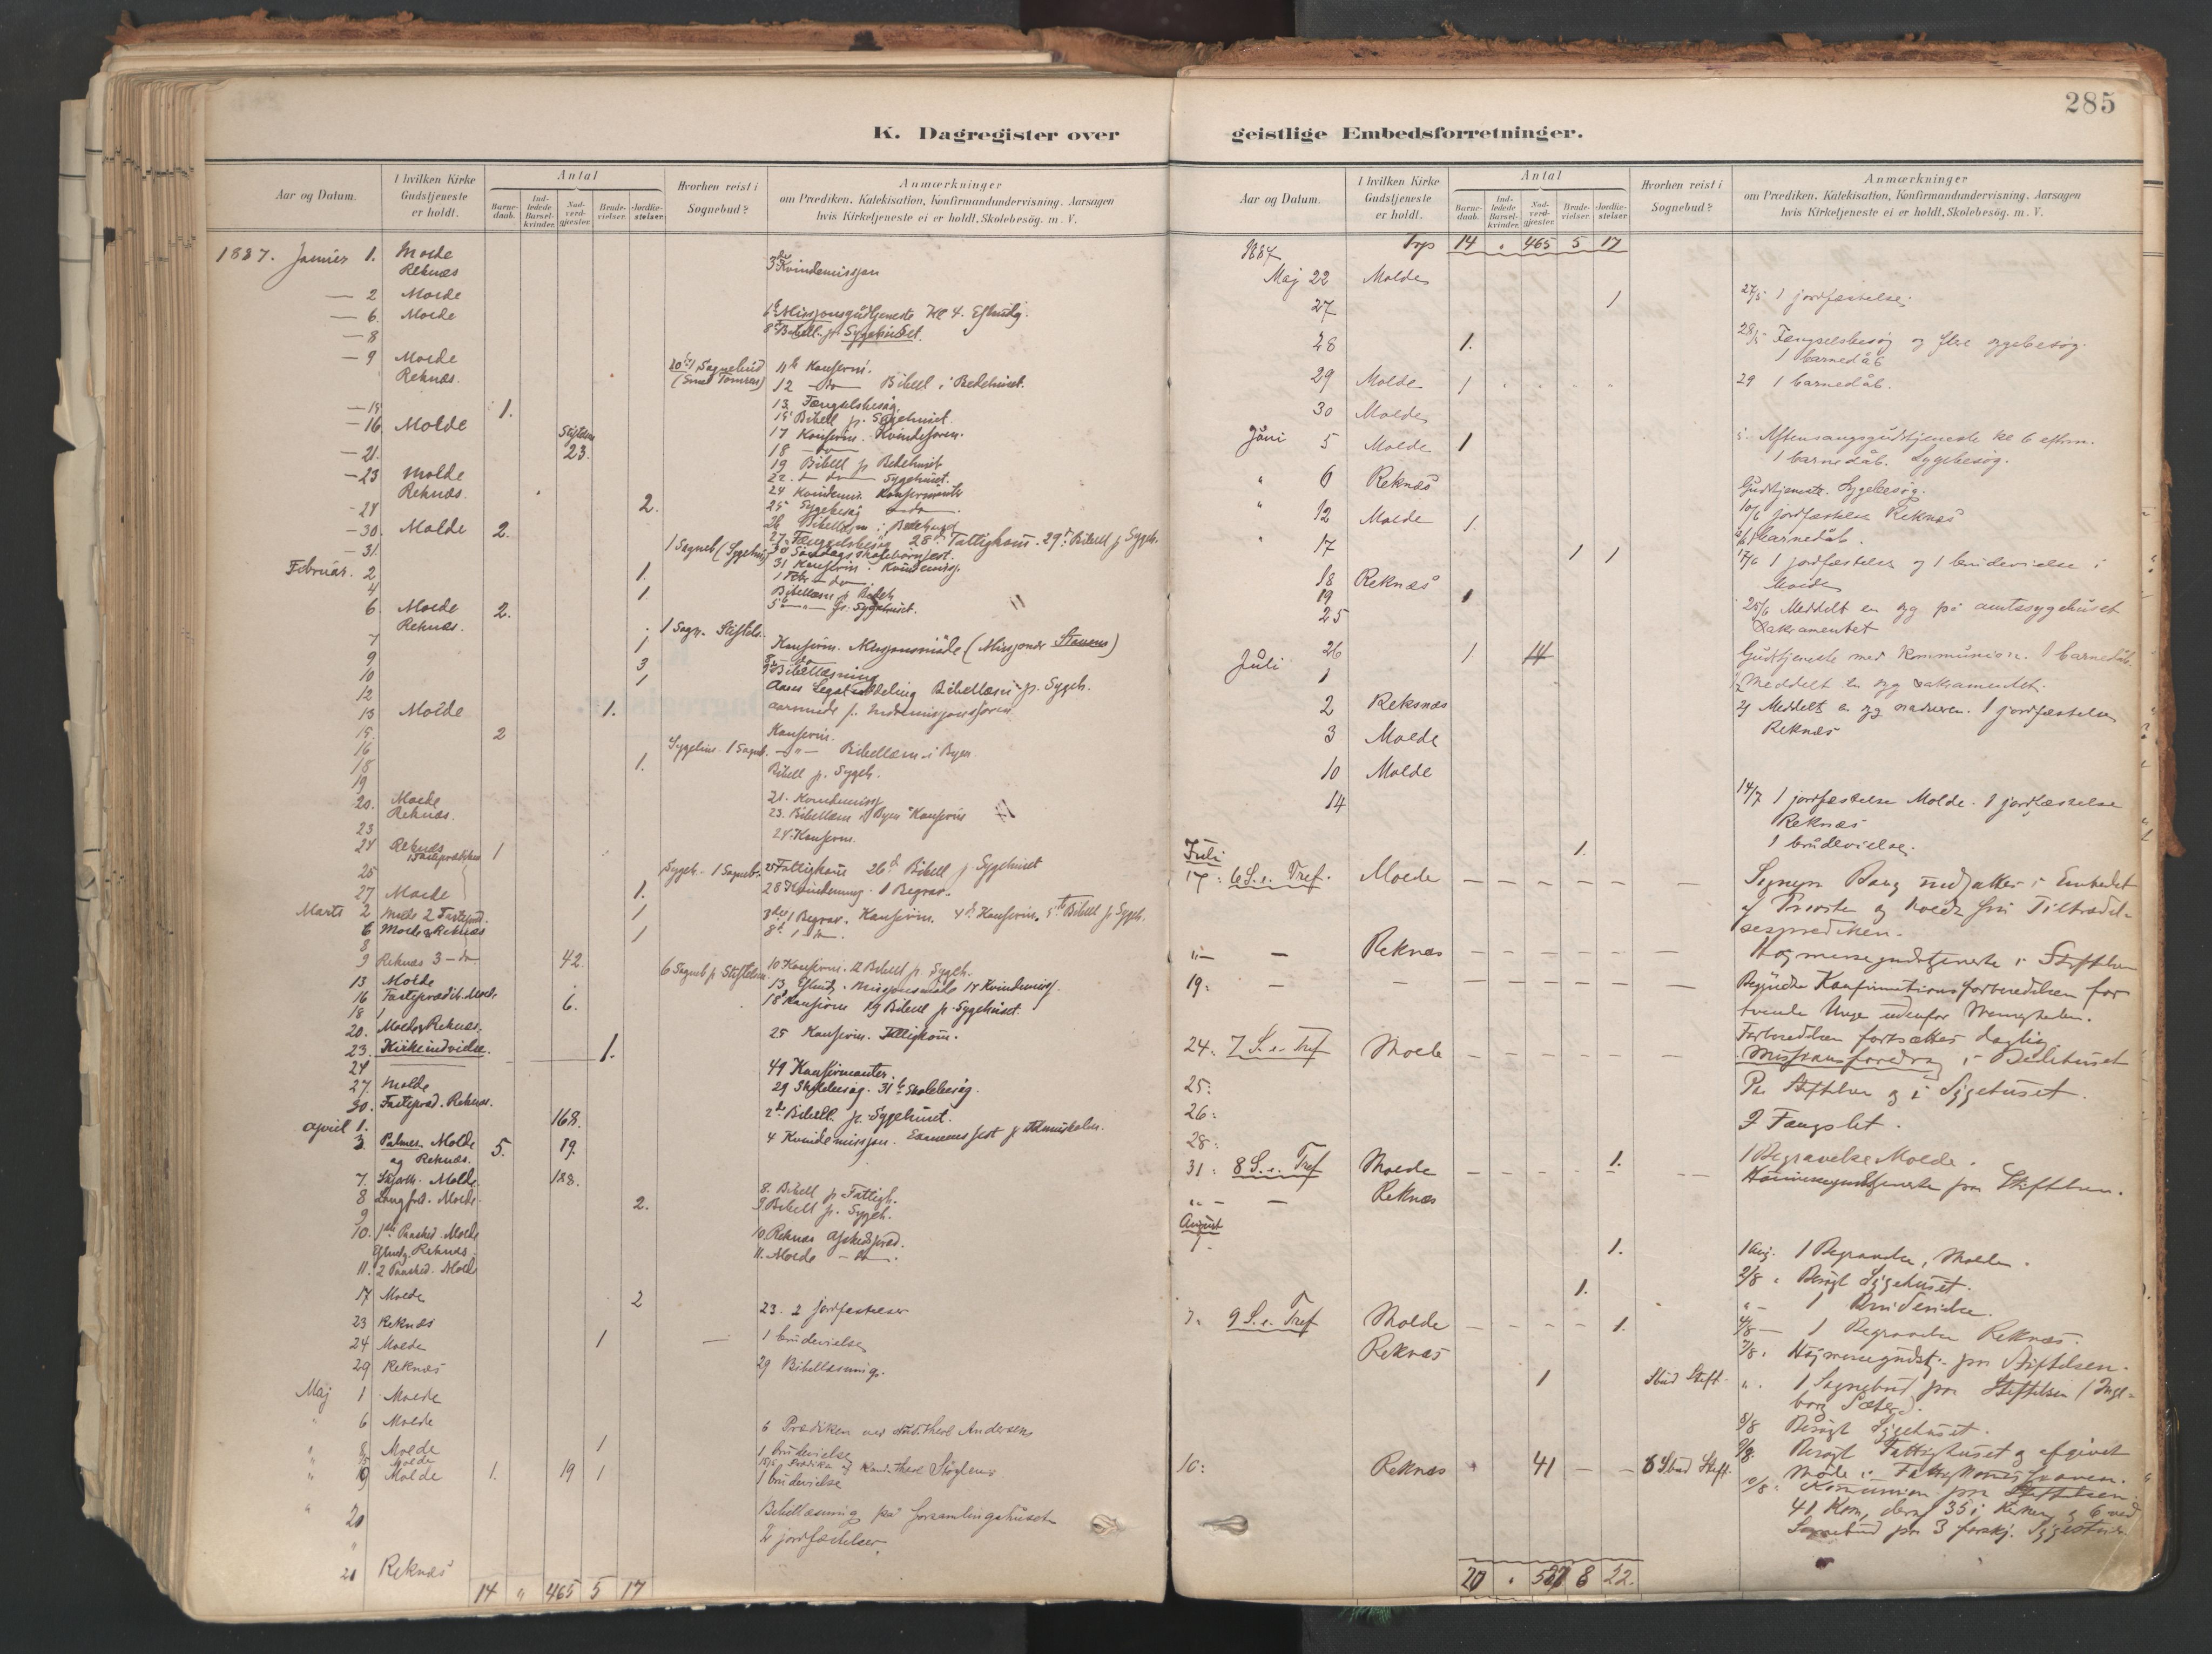 285
K. Dagregister over geistlige Embedsforretninger.
Aar og Datum.
I hvilken Kirke Gudstjeneste er holdt.
Antal
Barne-daab.
Ind-ledede Barsel-kvinder.
Nad-verd-gjester.
Brude-vielser.
Jordfæ-stelser.
Hvorhen reist i Sognebud?
Anmærkninger
om Prædiken, Katekisation, Konfirmandundervisning, Aarsagen
hvis Kirketjeneste ei er holdt, Skolebesög. m. V.
1887. Januar 1. Molde
Reknæs 3die Kvindemissjon
— 2 Molde
— 6. Molde 6te Missjonsgudtjeneste Kl 4. Eftmdg.
— 8 8de Bibell. p. Sygehuset.
— 9 Molde 10de 1 Sognebud 11te Konfirm.
Reknæs. 12 — do — Bibell i Bedehuset.
13. Fængselsbesøg
— 15 1. 15 Bibell p. Sygehuset
— 16 Molde Stiftelsen 17 Konfirm. Kvindeforen.
— 21. 23. 18 — do —
19 Bibell p Bedehuset
— 23 Molde 22. — do — Sygehuset.
Reknæs. 24 Kvindemis. Konfirmanter
— 24 2. 25 Sygebesøg — do —
26 Bibellæsn i Bedehuset
— 30. Molde 2. 27. Fængselsbesøg 28de Fattigkom. 29de Bibell p Sygeh.
— 31. 1 Sogneb (Sygehus) 30 Søndagsskolebørnfest.
31 Konfirm. Kvindemissj.
Februar. 2 1. 1 Febr — do —
4 1. Bibellæsn p Bedeh
6. Molde 2. 5te — " — p. Sygehuset.
Reknæs. 1 Sogn. Stiftels.
7 1 Konfirm. Missjonsmøde (Missjonær Stavem)
9 3 8. — do —
10 1 9de Bibellæsning
12 Bibellæsn p. Sygeh.
13 Molde 1. Aarsmøde f. Indremissjonsforen.
15. 2 Konfirm.
16 Sygehus. 1 Sogneb. — " — Bibellæsn i Byen
18 1. Bibell p. Sygeh.
19
20. Molde 21. Kvindemissj
Reknæs. 23. Bibellæsn i Byen Konfirm
23 24. Konfirm.
24 Reknæs 1
Fasteprædiken
25 Sygeh. 1 Sogneb. 25 Fattigkom 26de Bibell p Sygehuset
27 Molde 1. 28 Kvindemissj. 1 Begrav.
Marts 2 Molde 2 Fastepræd. 1 3die 1 Begrav. Konfirm. 4de Konfirm. 5te Bibell p Sygeh.
6 Molde & Reknæs 1 8de 1 do.
8
9 Reknæs 3 — do — 42. 6 Sogneb p Stiftelsen. 10 Konfirm. 12 Bibell p. Sygeh.
13 Molde 13. Eftmdg. Missjonsmøde 14 Kvindemissj.
16 Fasteprædik. Molde 6. 18de Konfirm 19 Bibell p. Sygehuset.
18
20. Molde & Reknæs. 25 Konfirm. Fattigkom.
23. Kirkeindvielse. 1.
24 49 Konfirmanter.
27. Molde 29 Skolebesøg. 31te Skolebesøg.
30. Fastepræd. Reknæs.
April 1. 168. 2de Bibell. p. Sygehuset.
3. Palmes. Molde 5. 19. 4 Kvindemissjon.
og Reknæs.
7. Skjærth. Molde. 188.
8 Langfred. Molde. 8. Bibell p Fattigh.
9 2. 9 Bibell p. Sygeh.
10. 1ste Paasked. Molde 10. Reknæs Afskedspræd.
Eftmdg. Reknæs. 11. Molde — do —.
11. 2 Paasked. Molde
17 Molde 2 23. 2 jordfæstelser
23 Reknæs
24 Molde 1 1 brudevielse
29 Reknæs 29 Bibellæsning.
Maj 1 Molde
" 6 Molde 6 Prædiken ved stud. theol Andersen
" 8 Molde 1 1 brudevielse
15 Molde 15/5 Prædiken af Kand. theol
" 19 Molde 1. 19 1 1 brudevielse
" 20 Bibellæsning på forsamlingshuset
" 2 jordfæstelser.
21 Reknæs
14 " 465 5 17
Aar og Datum.
I hvilken Kirke Gudstjeneste er holdt.
Antal
Barne-daab.
Ind-ledede Barsel-kvinder.
Nad-verd-gjester.
Brude-vielser.
Jordfæ-stelser.
Hvorhen reist i Sognebud?
Anmærkninger
om Prædiken, Katekisation, Konfirmandundervisning, Aarsagen
hvis Kirketjeneste ei er holdt, Skolebesög. m. V.
1887 Trp 14 " 465 5 17
Maj 22 Molde
27 1 27/5 1 jordfæstelse.
28 1. 28/5 Fængselsbesøg og flere sygebesøg.
1 barnedåb
29 Molde 1 29 1 barnedåb.
30 Molde
Juni 5 Molde 1 5. Aftensangsgudstjeneste kl 6 efterm.
1 barnedåb. Sygebesøg.
" 6 Reknæs Gudstjeneste. Sygebesøg.
" 12 Molde 1. 10/6 jordfæstelse Reknæs
12/6 1 barnedåb.
" 17 1 1 17/6 1 jordfæstelse og 1 brudevielse i
18 Reknæs Molde
19 1
25 25/6 Meddelt en syg på amtssygehuset
Sakramentet
26 1. 14 Gudstjeneste med kommunion. 1 barnedåb.
Juli 1 1/7 Meddelt en syg sakramentet.
2 Reknæs 2/7 Meddelt en syg nadveren. 1 jordfæstelse
3 Molde Reknæs
10 Molde
14 14/7 1 jordfæstelse Molde. 1 jordfæstelse
Reknæs
1. 1 brudevielse.
Juli
17: 6 S. e. Tref. Molde — — — — — — Sognepr Bang indsattes i Embedet
af Provsten og holdt sin Tiltrædel-
sesprædiken.
"— — Reknæs — — — — — — Højmessegudstjeneste i Stiftelsen
19: — — — — — — — — Begyndte Konfirmationsforberedelsen for
tvende Unge udenfor Menigheden.
Forberedelsen fortsættes daglig.
24: 7 S. e. Tref Molde — — — — — — Missionsforedrag i Bedehuset
25: Paa Stiftelsen og i Sygehuset.
26:
28: I Fængslet.
31: 8 S. e. Tref Molde — — — — 1. — 1 Begravelse Molde.
" — — Reknæs Høimessegudstjeneste paa Stiftelsen.
August
1. 1. 1 Aug. 1 Begravelse, Molde.
2/8 . Besøgt Sygehuset.
1. " — 1 Brudevielse.
7. 9 S. e. Tref Molde — — — — 1. 4/8 — 1 Begravelse Reknæs.
Reknæs 7/8. Højmessegudstj. paa Stiftelsen.
1 Sbud Stift. ". 1 Sognebud paa Stiftelsen (Inge-
borg
8/8 Besøgt Sygehuset.
9/8. Besøgt Fattighuset og afgivet
10: Reknæs 41 — — 6 Sbud Stift. Møde i Fattigkommissionen.
10/8: Kommunion paa Stiftelsen
41 Kom, deraf 35 i Kirken og 6 ved
Sognebud paa 3 forskj. Sygestuer.
20 " 527 8 22.